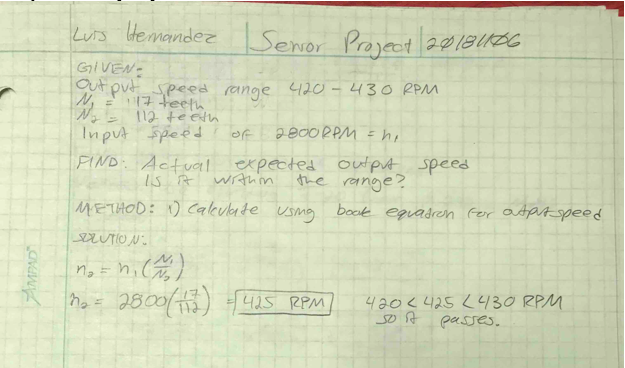 Luis Hernandez Senior Project 20181106
GIVEN:
Output speed range 420 - 430 RPM
N₁ = 17 teeth
N₂ = 112 teeth
Input speed of 2800RPM = n₁
FIND: Actual expected output speed
Is it within the range?
METHOD: 1) Calculate using book equation for output speed
SOLUTION:
n₂ = n₁ (N₁/N₂)
n₂ = 2800(17/112) = 425 RPM 420 < 425 < 430 RPM
so it passes.
AMPAD